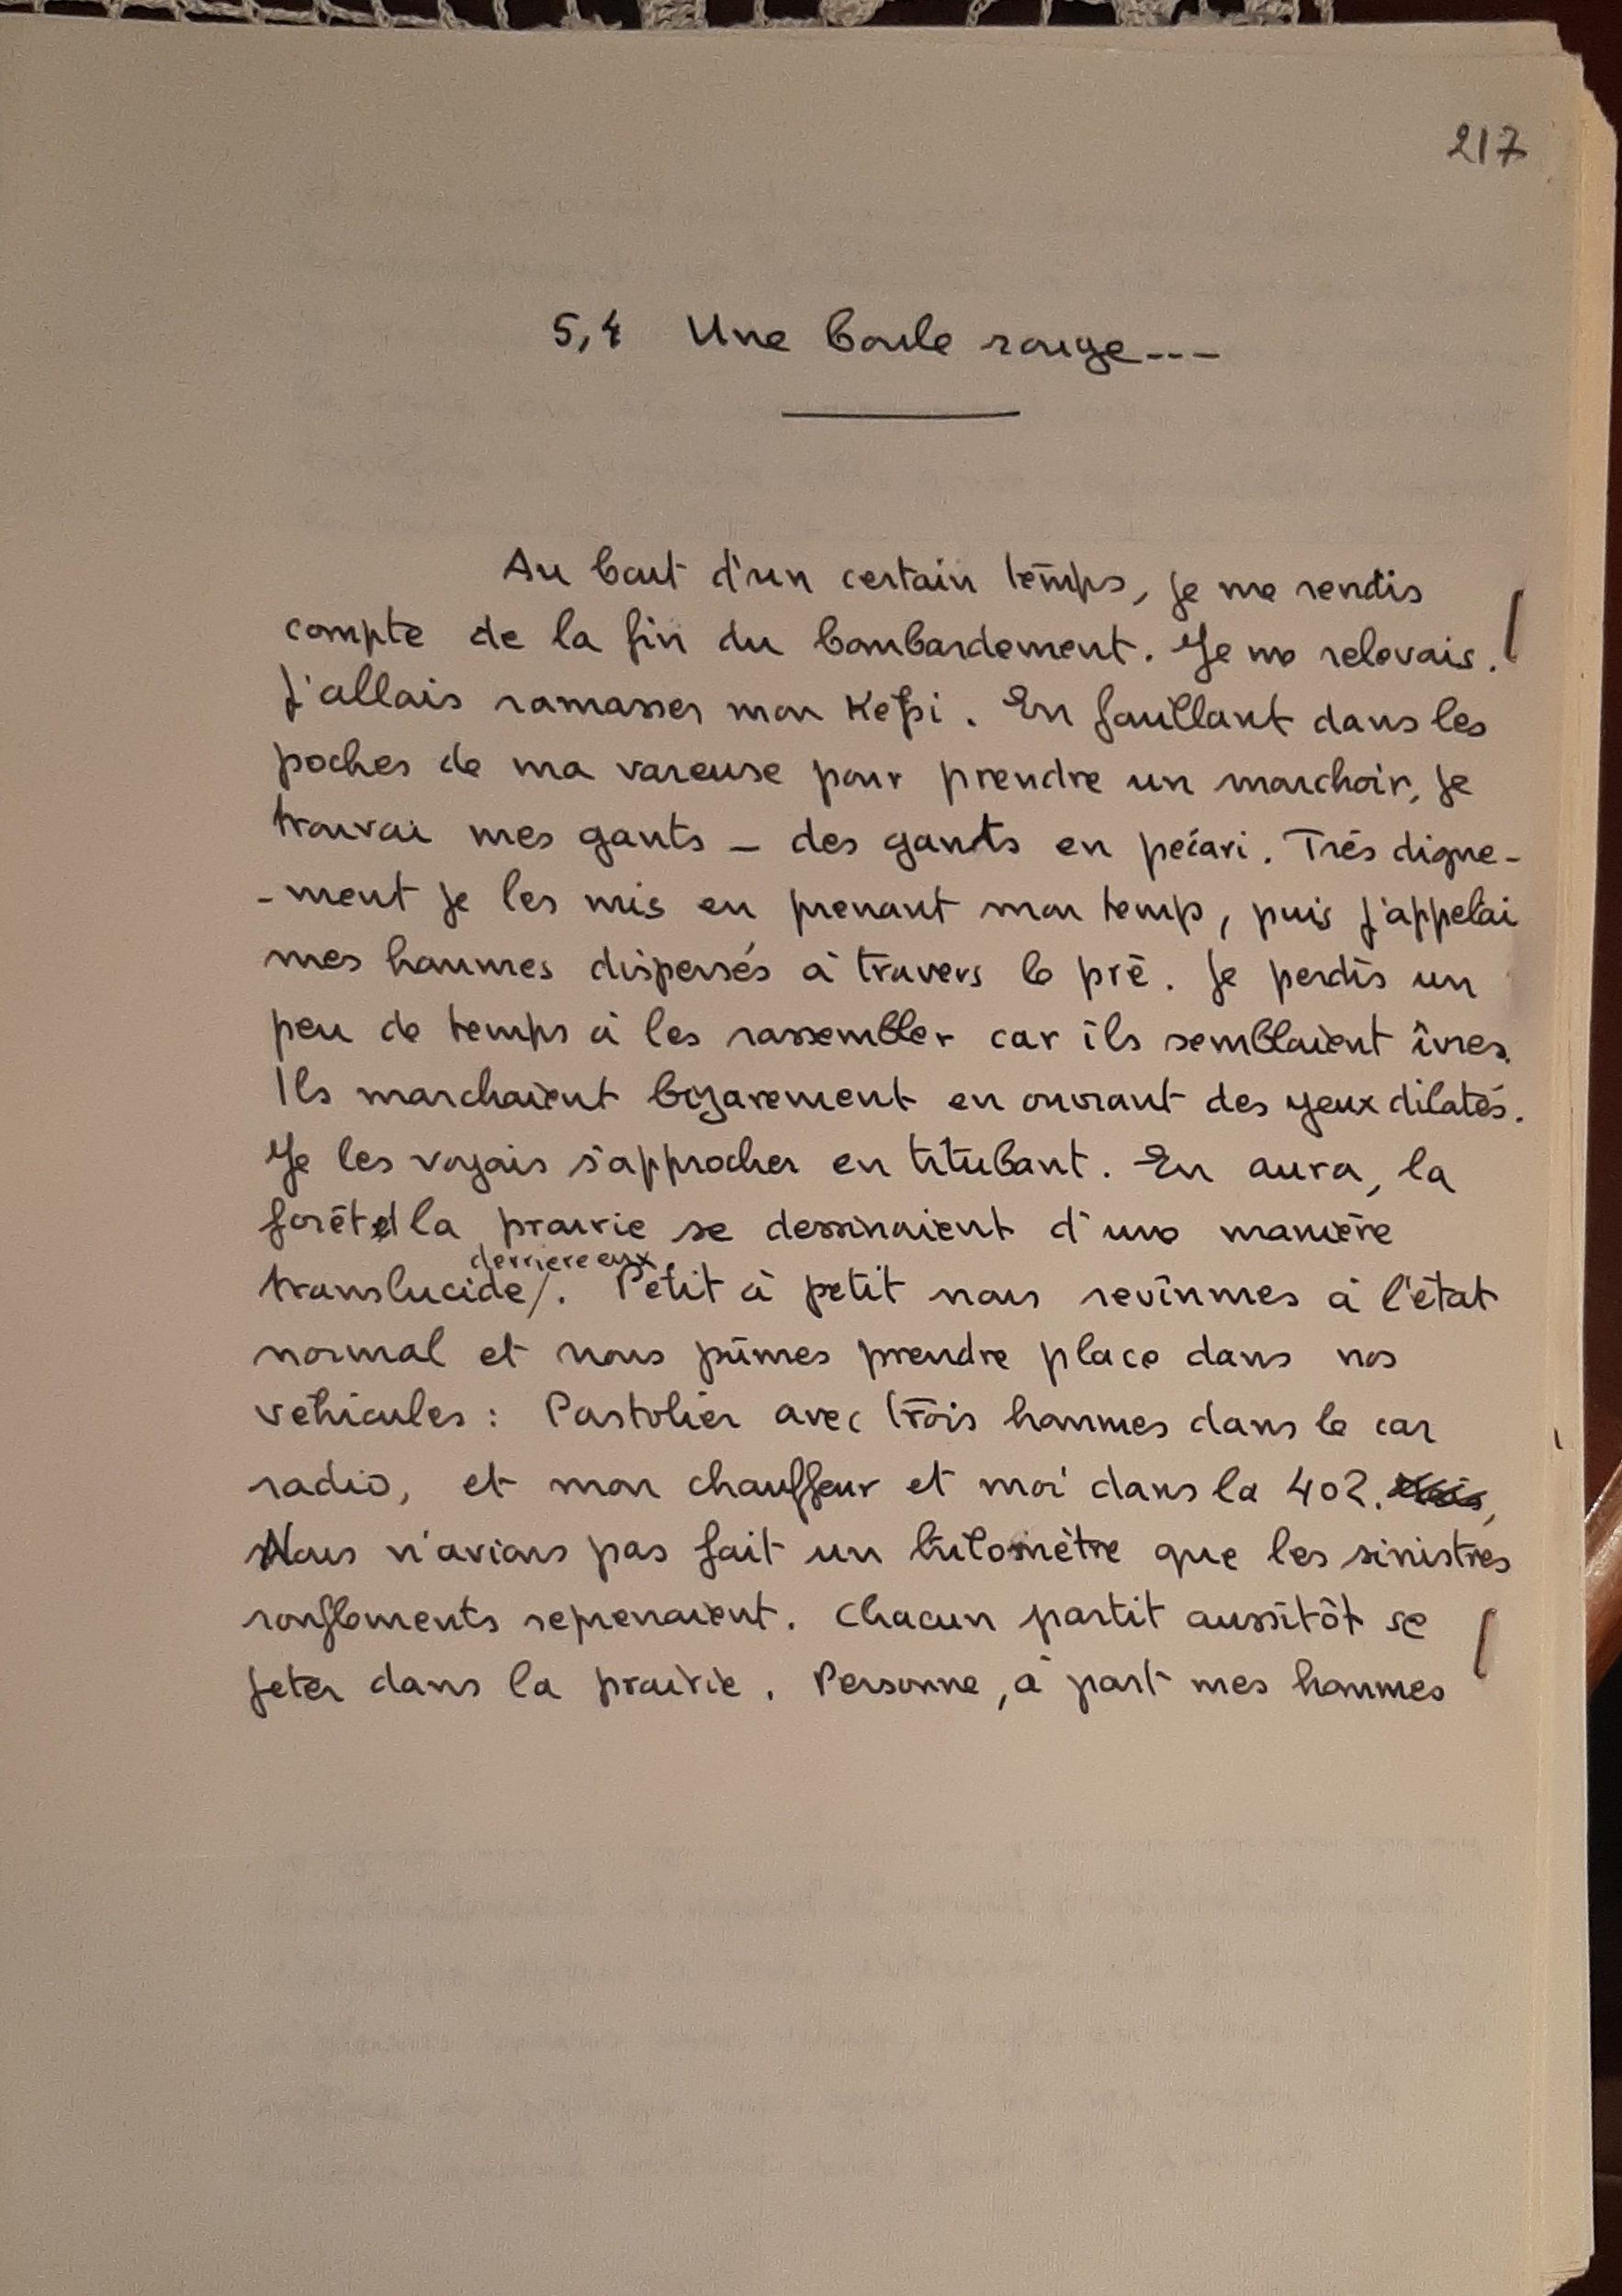 217
5,4 Une boule rouge---
Au bout d'un certain temps, je me rendis
compte de la fin du bombardement. Je me relevais.
J'allais ramasser mon Képi. En fouillant dans les
poches de ma vareuse pour prendre un mouchoir, je
trouvai mes gants - des gants en pécari. Très digne-
-ment je les mis en prenant mon temps, puis j'appelai
mes hommes dispersés à travers le pré. Je perdis un
peu de temps à les rassembler car ils semblaient îvres.
Ils marchaient bizarement en ouvrant des yeux dilatés.
Je les voyais s'approcher en titubant. En aura, la
forêt et la prairie se dessinaient d'une manière
derrière eux
translucide/. Petit à petit nous revînmes à l'état
normal et nous pûmes prendre place dans nos
véhicules : Pastolier avec trois hommes dans le car
radio, et mon chauffeur et moi dans la 402.
Nous n'avions pas fait un kilomètre que les sinistres
ronflements reprenaient. Chacun partit aussitôt se
jeter dans la prairie. Personne, à part mes hommes